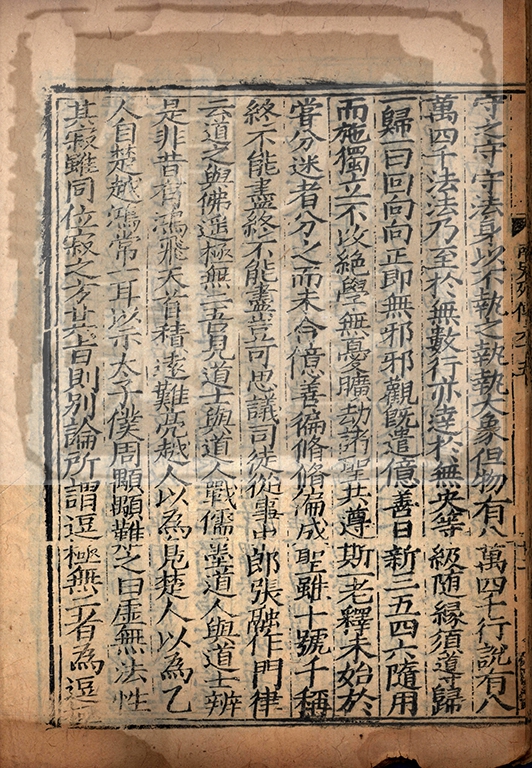 守之守守法身以不執之執執大象但物有八萬四千行說有八
萬四千法法乃至於無數行亦逹於無央等級隨緣須導歸
一歸一曰回向向正即無邪邪觀既遣億善日新三五四六隨用
而施獨立不改絕學無憂曠劫諸聖共尊斯一老釋未始於
嘗分迷者分之而未合億善徧脩脩徧成聖雖十號千稱
終不能盡終不能盡豈可思議司徒從事中郎張融作門律
云道之與佛逗極無二吾見道士與道人戰儒墨道人與道士辨
是非昔有鴻飛天首積遠難亮越人以為鳧楚人以為乙
人自楚越鴻常一耳以示太子僕周顒顒難之曰虛無法性
其寂雖同位寂之方其旨則別論所謂逗極無二者為逗